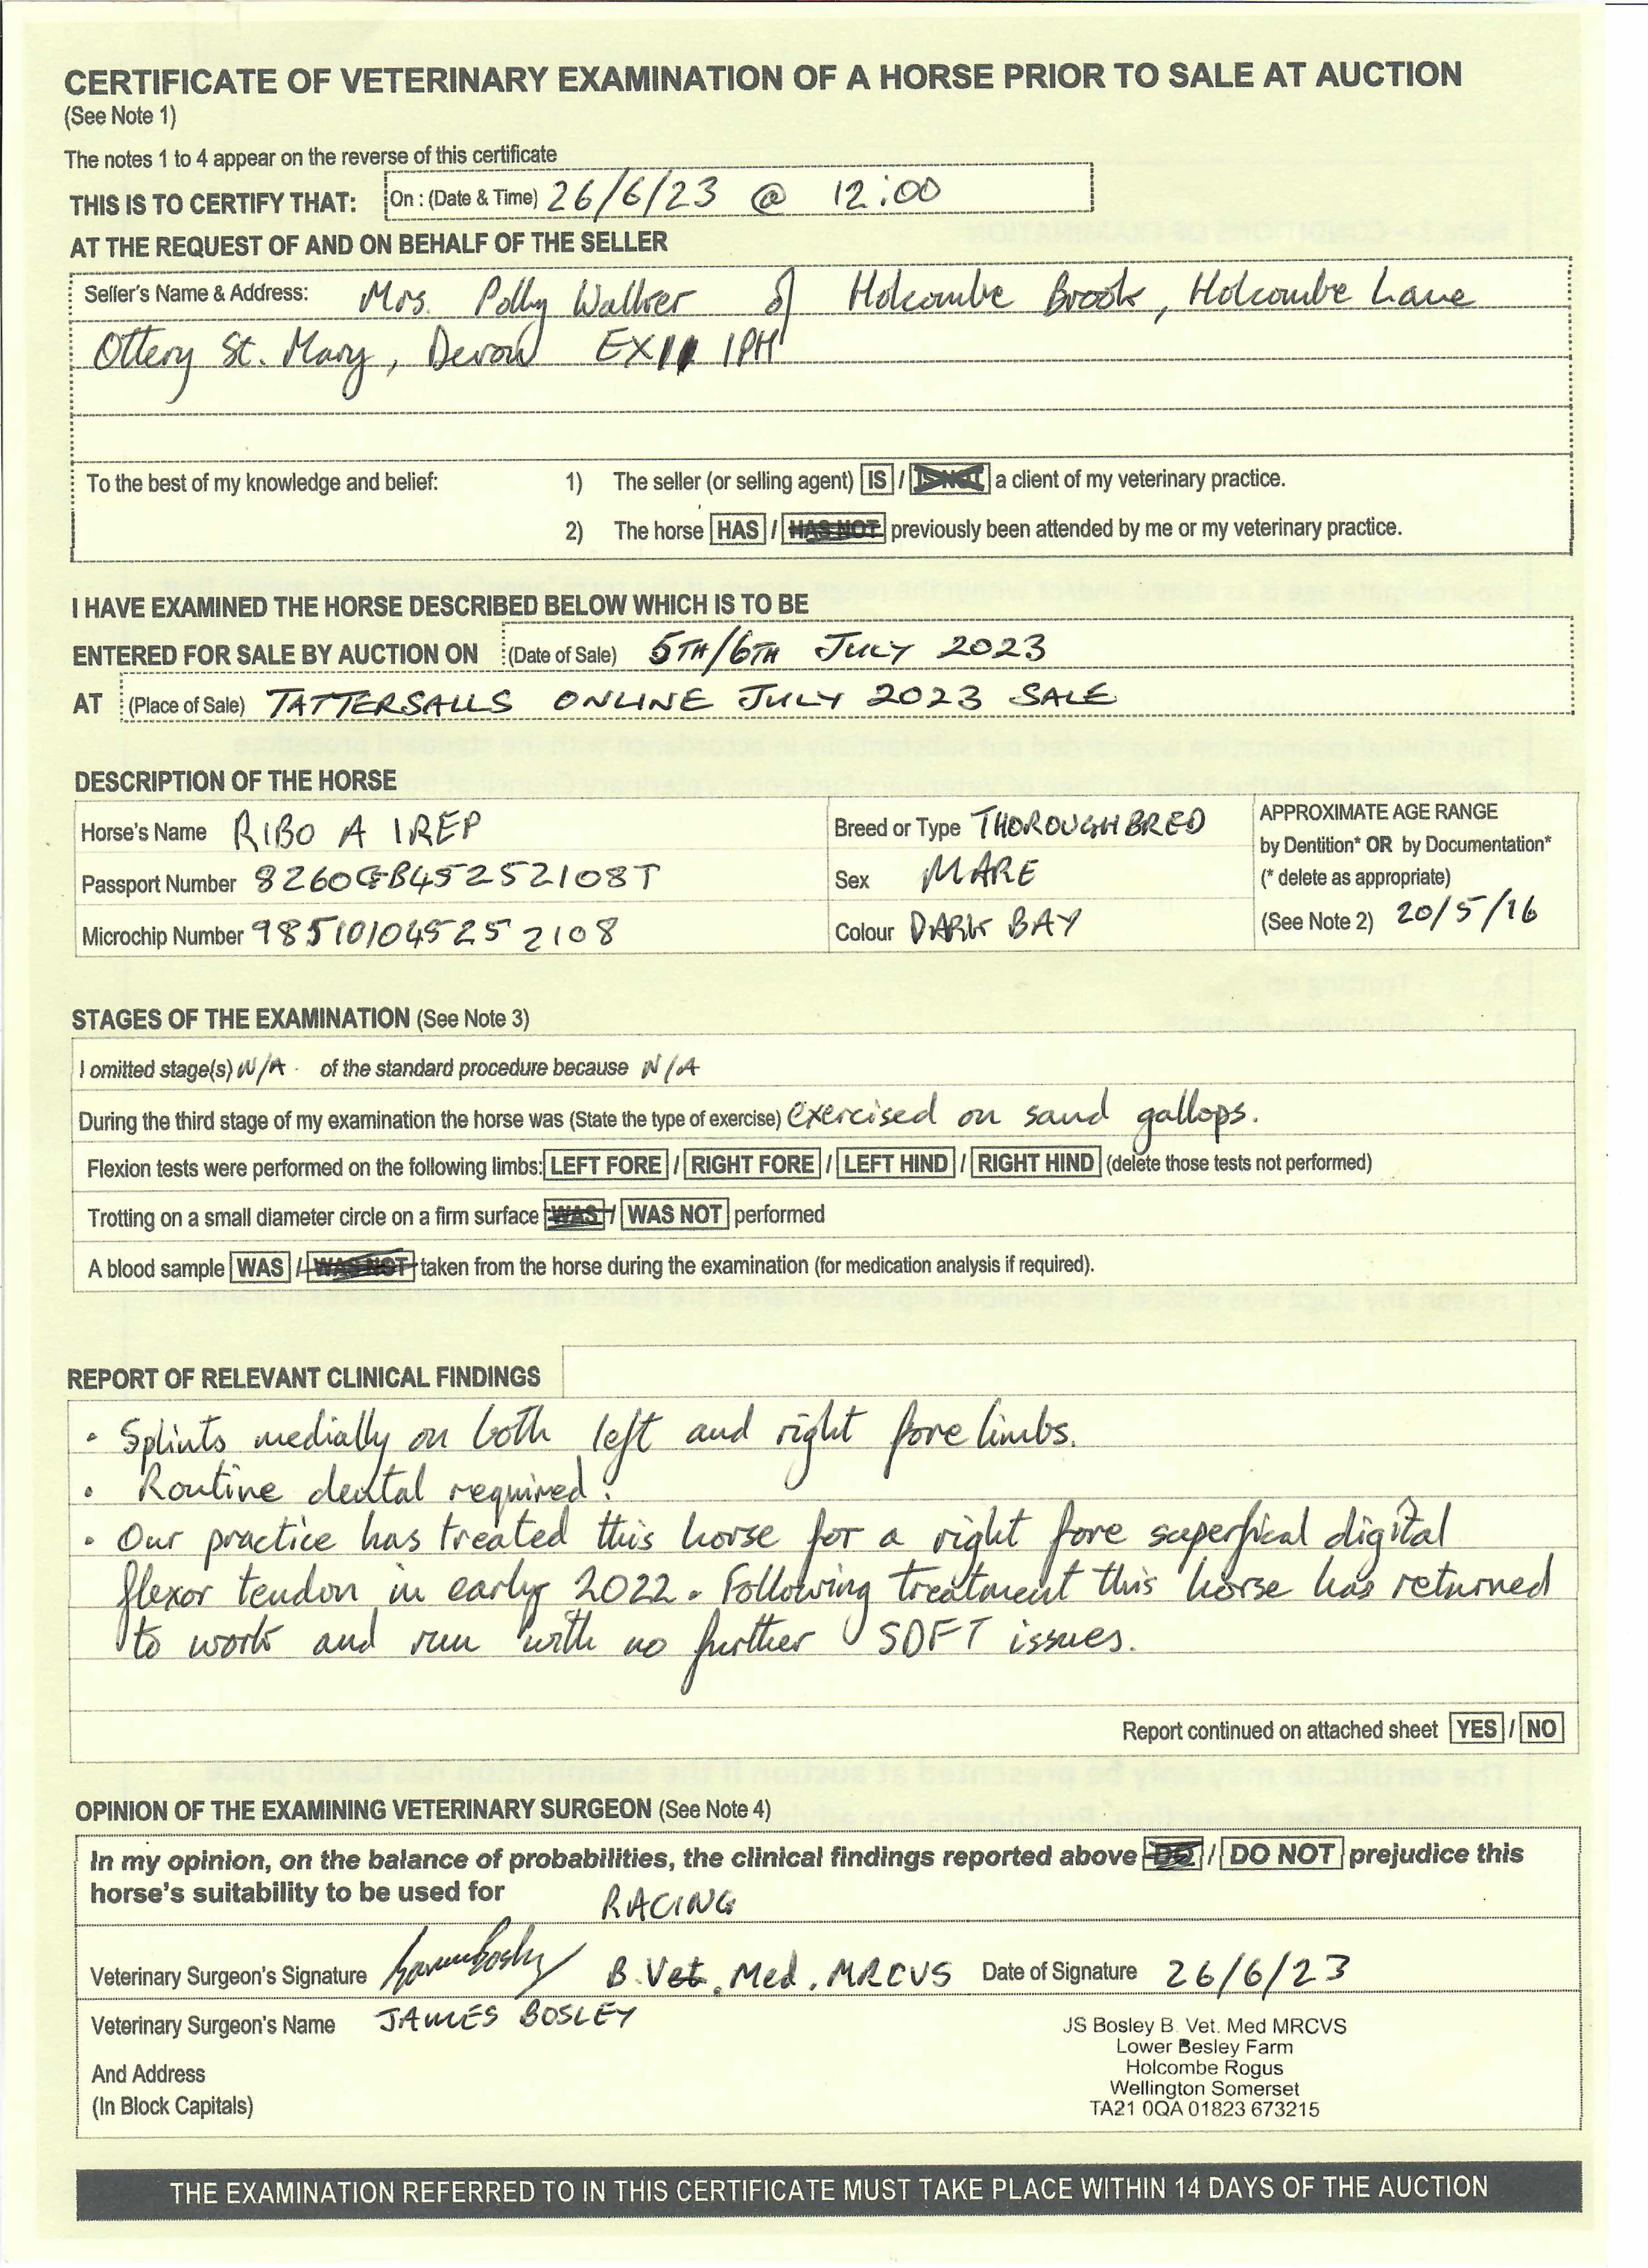 CERTIFICATE OF VETERINARY EXAMINATION OF A HORSE PRIOR TO SALE AT AUCTION
(See Note 1)
The notes 1 to 4 appear on the reverse of this certificate
THIS IS TO CERTIFY THAT: On : (Date & Time) 26/6/23 @ 12:00
AT THE REQUEST OF AND ON BEHALF OF THE SELLER
Seller's Name & Address: Mrs. Polly Walker of Holcombe Brook, Holcombe Lane
Ottery St. Mary, Devon EX11 1PH
To the best of my knowledge and belief: 1) The seller (or selling agent) IS / IS NOT a client of my veterinary practice.
2) The horse HAS / HAS NOT previously been attended by me or my veterinary practice.
I HAVE EXAMINED THE HORSE DESCRIBED BELOW WHICH IS TO BE
ENTERED FOR SALE BY AUCTION ON (Date of Sale) 5TH/6TH JULY 2023
AT (Place of Sale) TATTERSALLS ONLINE JULY 2023 SALE
DESCRIPTION OF THE HORSE
Horse's Name RIBO A IREP
Passport Number 8260GB45252108T
Microchip Number 985101045252108
Breed or Type THOROUGHBRED
Sex MARE
Colour DARK BAY
APPROXIMATE AGE RANGE
by Dentition* OR by Documentation*
(* delete as appropriate)
(See Note 2) 20/5/16
STAGES OF THE EXAMINATION (See Note 3)
I omitted stage(s) N/A - of the standard procedure because N/A
During the third stage of my examination the horse was (State the type of exercise) exercised on sand gallops.
Flexion tests were performed on the following limbs: LEFT FORE / RIGHT FORE / LEFT HIND / RIGHT HIND (delete those tests not performed)
Trotting on a small diameter circle on a firm surface WAS / WAS NOT performed
A blood sample WAS / WAS NOT taken from the horse during the examination (for medication analysis if required).
REPORT OF RELEVANT CLINICAL FINDINGS
• Splints medially on both left and right fore limbs.
• Routine dental required.
• Our practice has treated this horse for a right fore superfical digital
flexor tendon in early 2022. Following treatment this horse has returned
to work and run with no further SDFT issues.
Report continued on attached sheet YES / NO
OPINION OF THE EXAMINING VETERINARY SURGEON (See Note 4)
In my opinion, on the balance of probabilities, the clinical findings reported above DO / DO NOT prejudice this
horse's suitability to be used for RACING
Veterinary Surgeon's Signature B.Vet.Med.MRCVS Date of Signature 26/6/23
Veterinary Surgeon's Name JAMES BOSLEY
And Address
(In Block Capitals)
JS Bosley B. Vet. Med MRCVS
Lower Besley Farm
Holcombe Rogus
Wellington Somerset
TA21 0QA 01823 673215
THE EXAMINATION REFERRED TO IN THIS CERTIFICATE MUST TAKE PLACE WITHIN 14 DAYS OF THE AUCTION